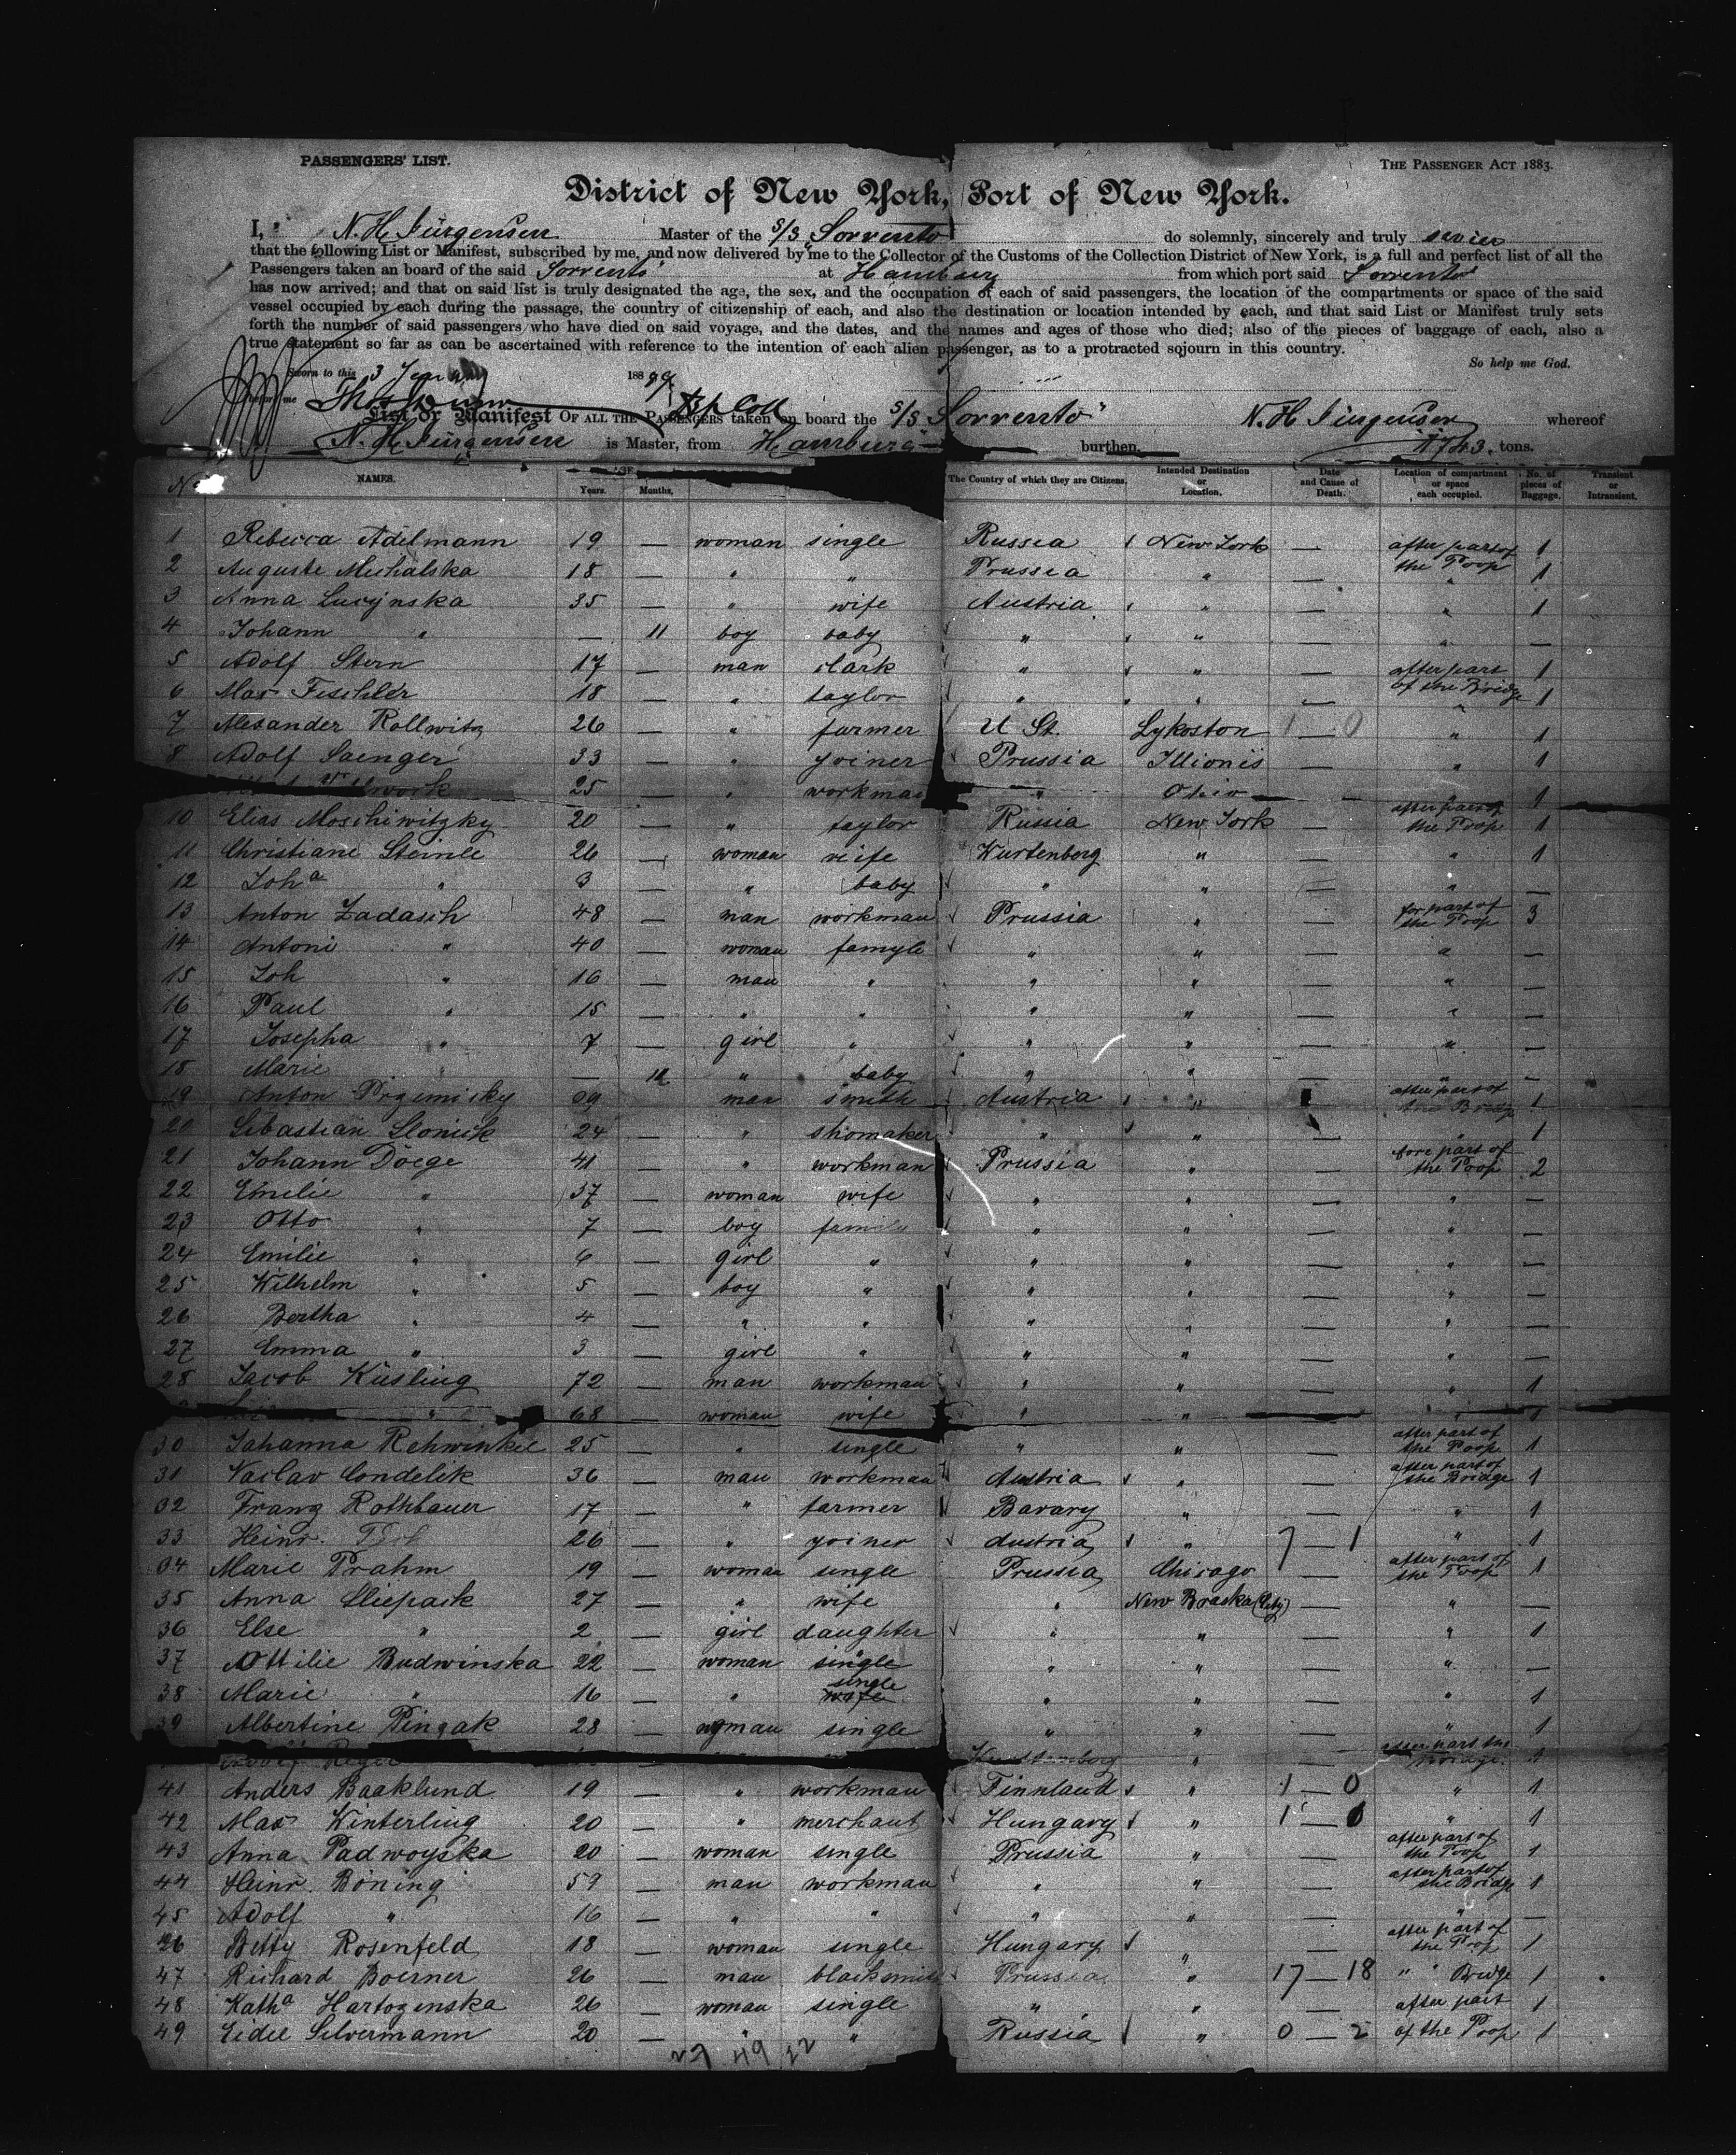 PASSENGERS' LIST.
THE PASSENGER ACT 1883.
District of New York, Port of New York.
I, N. H. Jürgensen Master of the S/S Sorrento do solemnly, sincerely and truly
that the following List or Manifest, subscribed by me, and now delivered by me to the Collector of the Customs of the Collection District of New York, is a full and perfect list of all the
Passengers taken an board of the said Sorrento at Hamburg from which port said Sorrento
has now arrived; and that on said list is truly designated the age, the sex, and the occupation of each of said passengers, the location of the compartments or space of the said
vessel occupied by each during the passage, the country of citizenship of each, and also the destination or location intended by each, and that said List or Manifest truly sets
forth the number of said passengers who have died on said voyage, and the dates, and the names and ages of those who died; also of the pieces of baggage of each, also a
true statement so far as can be ascertained with reference to the intention of each alien passenger, as to a protracted sojourn in this country.
So help me God.
Sworn to this 3 188
me
List or Manifest OF ALL THE PASSENGERS taken on board the S/S Sorrento" N. H. Jürgensen whereof
N. H. Jürgensen is Master, from Hamburg burthen, tons.
NAMES. Years. Months. The Country of which they are Citizens. Intended Destination or Location. Date and Cause of Death. Location of compartment or space each occupied. No. of pieces of Baggage. Transient or Intransient.
1 Rebecca Adelmann 19 — woman single Russia New York — after part of the Poop 1
2 Auguste Michalska 18 — " " Prussia " — " 1
3 Anna Lucynska 35 — " wife Austria " — " 1
4 Johann " — 11 boy baby " " — " —
5 Adolf Stern 17 — man clark " " — after part of the Bridge 1
6 Max Fischler 18 — " taylor " " — " 1
7 Alexander Rollwitz 26 — " farmer U St. Lykoston 1 — 0 " 1
8 Adolf Saenger 33 — " joiner Prussia Illionis — " 1
25 — " workman " Ohio — " 1
10 Elias Moschiwitzky 20 — " taylor Russia New York — after part of the Poop 1
11 Christiane Steinle 26 — woman wife Wurtenberg " — " 1
12 Joha " 3 — " baby " " — " —
13 Anton Zadasch 48 — man workman Prussia " — for part of the Poop 3
14 Antoni " 40 — woman famyle " " — " —
15 Joh " 16 — man " " " — " —
16 Paul " 15 — " " " " — " —
17 Josepha " 7 — girl " " " — " —
18 Marie " — " baby " " — " —
19 Anton Przemisky — man smith Austria " after part of the Bridge 1
20 Sebastian Slonick 24 — " shomaker " " " 1
21 Johann Doege 41 — " workman Prussia " — fore part of the Poop 2
22 Emilie " 37 — woman wife " " — " —
23 Otto " 7 — boy family " " — " —
24 Emilie " 6 — girl " " " — " —
25 Wilhelm " 5 — boy " " " — " —
26 Bertha " 4 — " " " " — " —
27 Emma " 3 — girl " " " — " —
28 Jacob Küsling 72 — man workman " " — " 1
" 68 — woman wife " " — " 1
30 Johanna Rehwinkel 25 — " single " " — after part of the Poop 1
31 Vaclav Condelik 36 — man workman Austria " — after part of the Bridge 1
32 Franz Rothbauer 17 — " farmer Bavary " — " 1
33 Heinr. 26 — " joiner Austria " 7 — 1 " 1
34 Marie Prahm 19 — woman single Prussia Chicago — after part of the Poop 1
35 Anna Sliepack 27 — " wife " New Braska (City) — " —
36 Else " 2 — girl daughter " " — " 1
37 Ottilie Budwinska 22 — woman single " " — " —
38 Marie " 16 — " single wife " " — " 1
39 Albertine Pinzak 28 — woman single " " — " 1
after part the Bridge 1
41 Anders Baaklund 19 — " workman Finnland " 1 — 0 " 1
42 Max Winterling 20 — " merchant Hungary " 1 — 0 " 1
43 Anna Padwoyska 20 — woman single Prussia " — after part of the Poop 1
44 Heinr. Böning 59 — man workman " " — after part of the Bridge 1
45 Adolf " 16 — " " " " — " —
46 Betty Rosenfeld 18 — woman single Hungary " — after part of the Poop 1
47 Richard Boerner 26 — man blacksmith Prussia " 17 — 18 " " Bridge 1
48 Katha Hartozenska 26 — woman single " " — after part 1
49 Eidel Silvermann 20 — " " Russia " 0 — 2 of the Poop 1